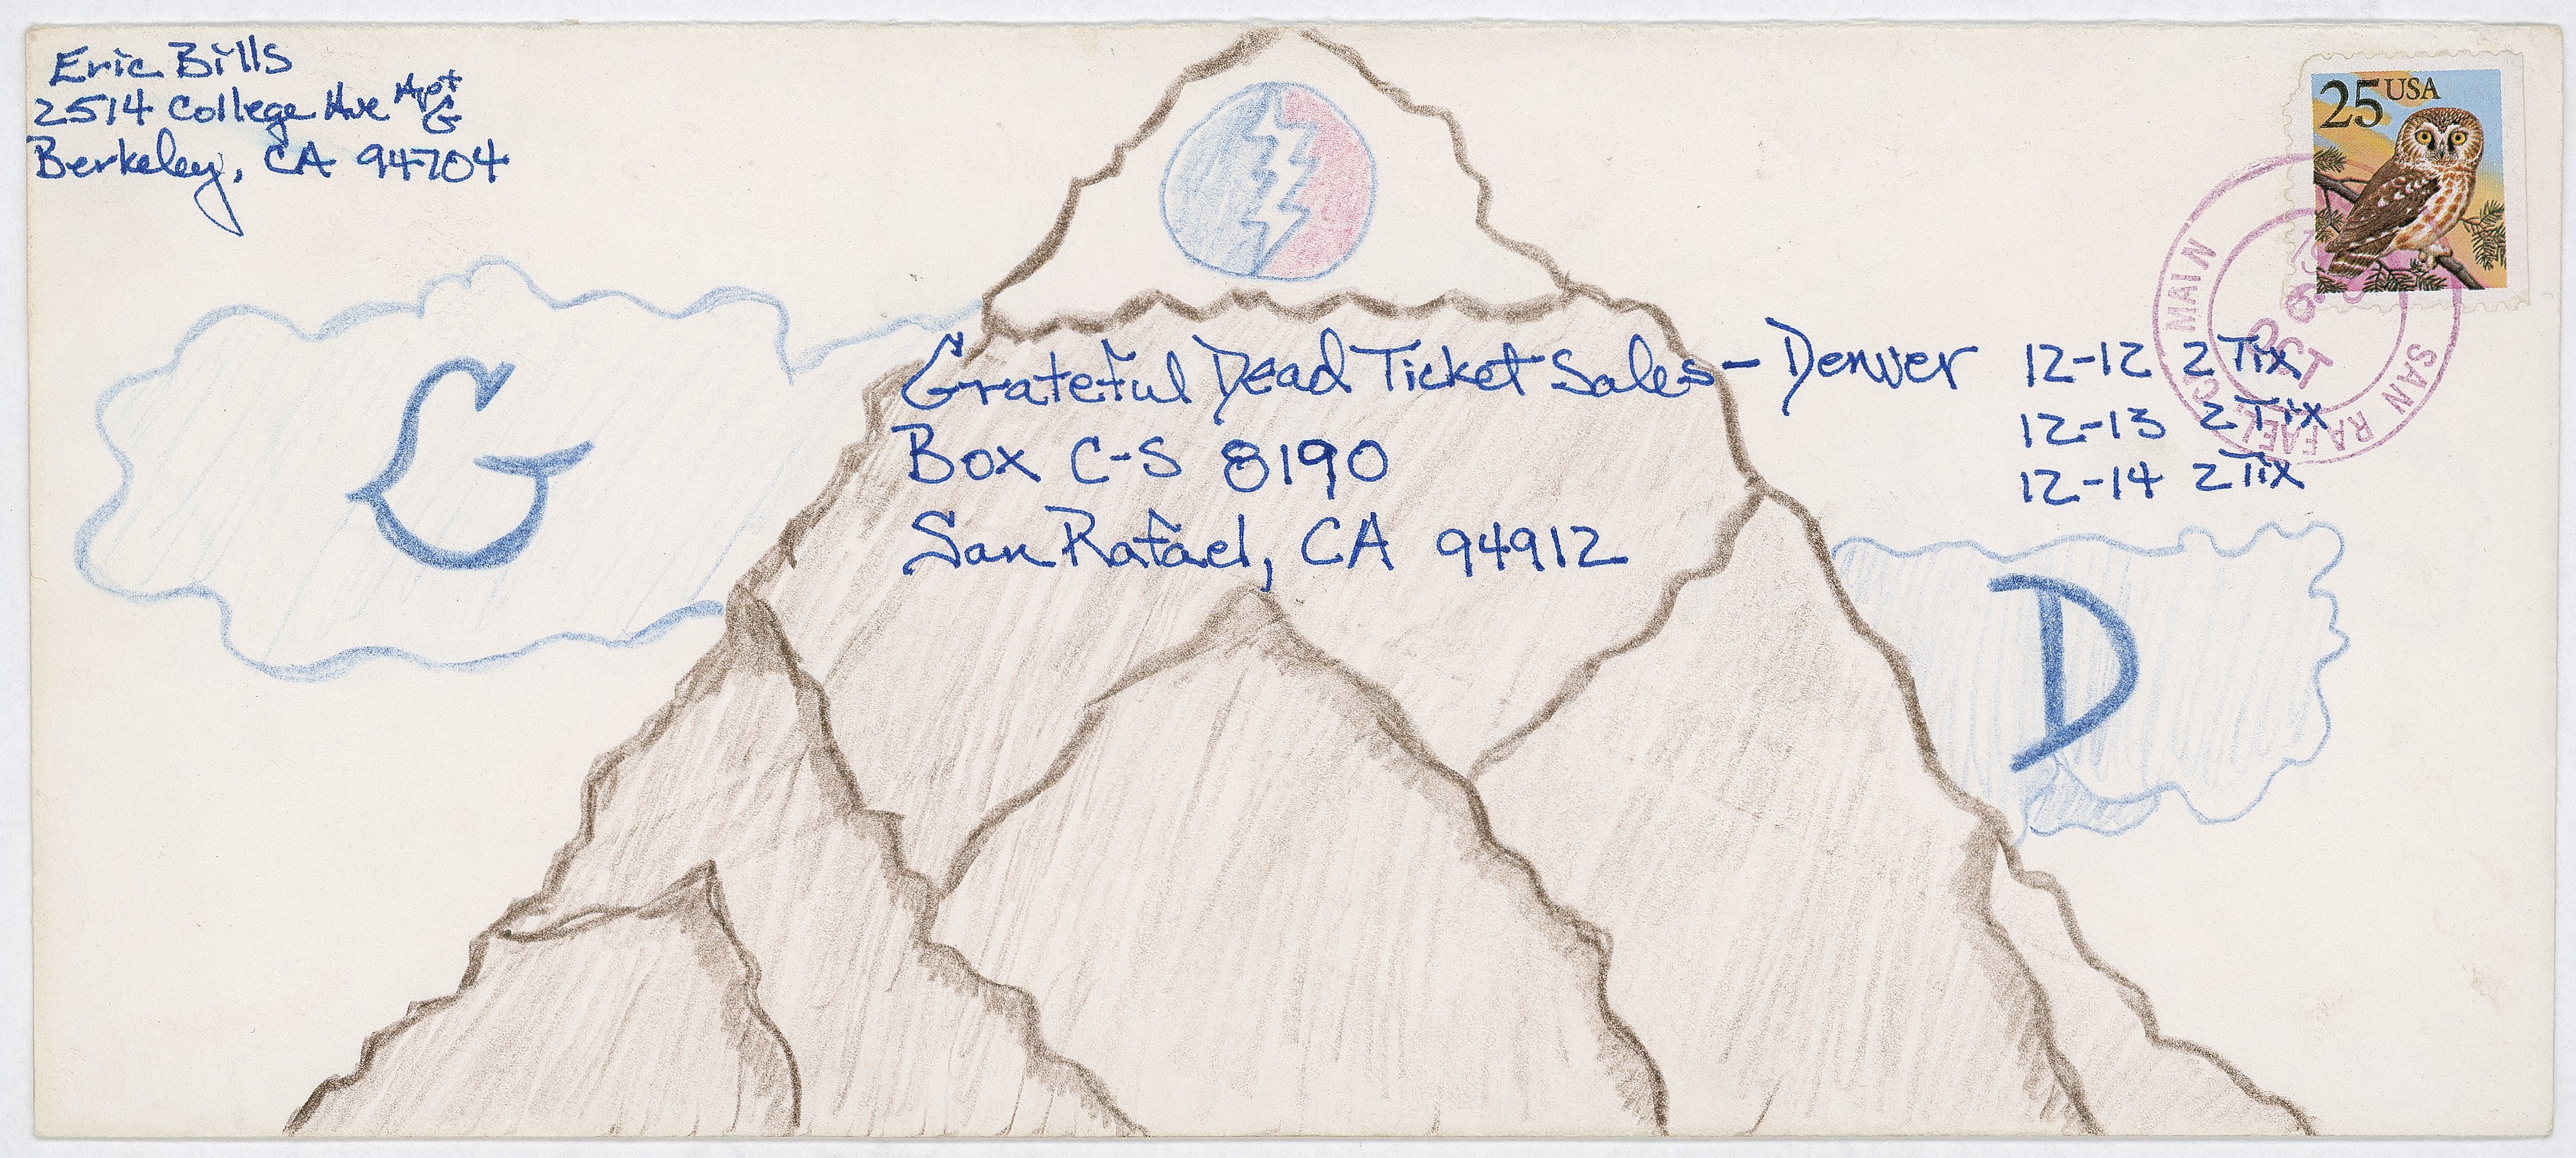 Eric Bills
2514 College Ave Apt G
Berkeley, CA 94704
25 USA
MAIN
SAN RAFAEL CA
OCT
G
Grateful Dead Ticket Sales - Denver 12-12 2 Tix
12-13 2 Tix
12-14 2 Tix
Box C-S 8190
San Rafael, CA 94912
D